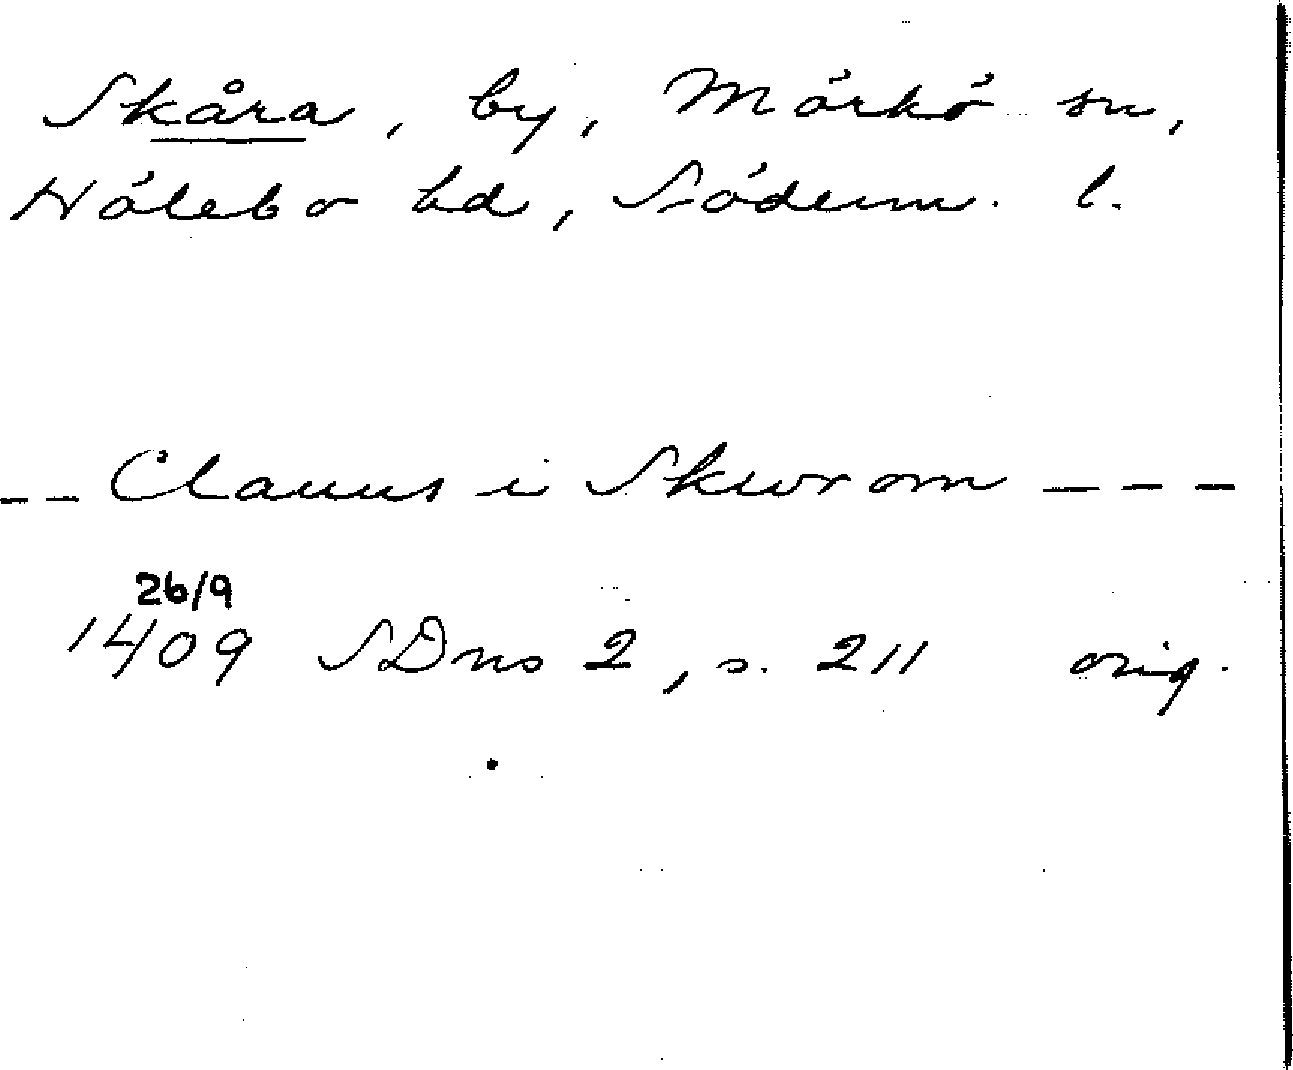 Skåra, by, Mörkö sn,
Hölebo hd, Söderm. l.
-- Clauus i Skwrom ---
26/9
1409 SDns 2, s. 211 orig.